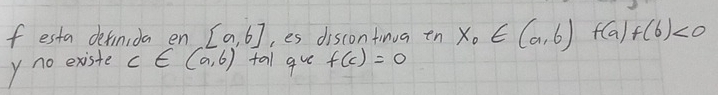 f esta definida en [a,b], es discontinua en x₀ ∈ (a,b) f(a)f(b)<0
y no existe c ∈ (a,b) tal que f(c) = 0